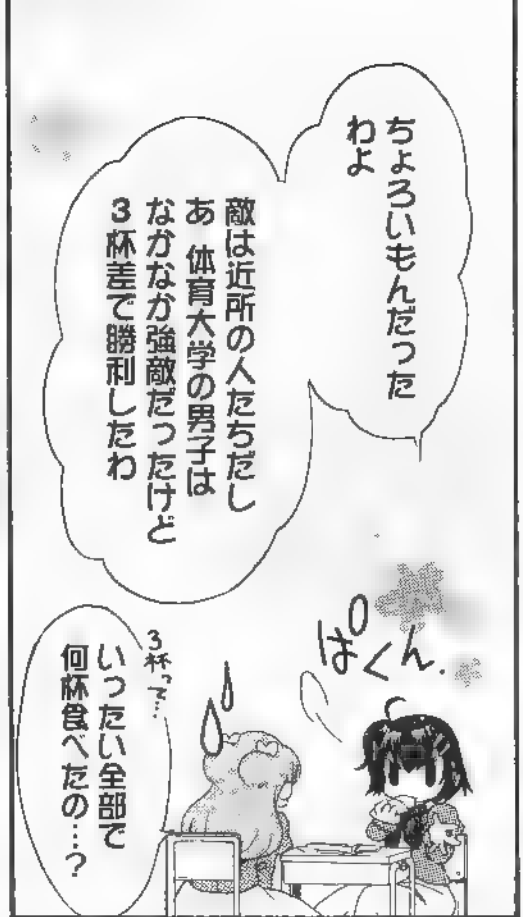 ちょろいもんだった
わよ
敵は近所の人たちだし
あ 体育大学の男子は
なかなか強敵だったけど
3杯差で勝利したわ
ぱくん.
3杯って…
いったい全部で
何杯食べたの…?